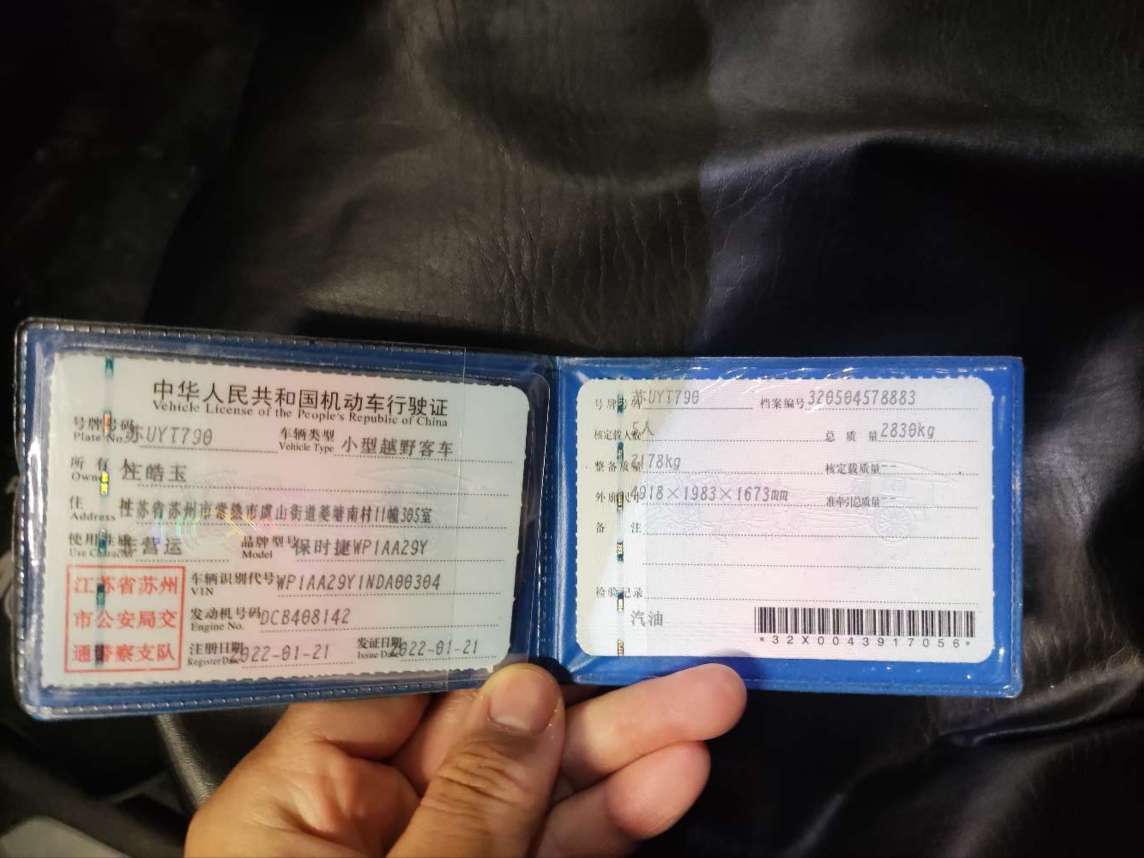 中华人民共和国机动车行驶证
Vehicle License of the People's Republic of China
号牌号码 苏UYT790 车辆类型 小型越野客车
Plate No. Vehicle Type
所有人 汪皓玉
Owner
住址 江苏省苏州市常熟市虞山街道菱塘南村11幢305室
Address
使用性质 非营运 品牌型号 保时捷WP1AA29Y
Use Character Model
江苏省苏州
市公安局交
通警察支队
车辆识别代号 WP1AA29Y1NDA00304
VIN
发动机号码 DCB408142
Engine No.
注册日期 2022-01-21 发证日期 2022-01-21
Register Date Issue Date
号牌号码 苏UYT790 档案编号 320504578883
核定载人数 5人 总质量 2830kg
整备质量 2178kg 核定载质量 --
外廓尺寸 4918×1983×1673mm 准牵引总质量 --
备注
检验记录
汽油
*32X0043917056*